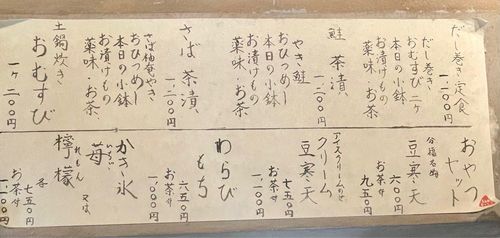 だし巻き定食
一、二〇〇円
だし巻き
おむすび二ヶ
本日の小鉢
お漬けもの
薬味 お茶
鮭 茶漬
一、二〇〇円
やき鮭
おひつめし
本日の小鉢
お漬けもの
薬味 お茶
さば 茶漬
一、二〇〇円
さば柚庵やき
おひつめし
本日の小鉢
お漬けもの
薬味 お茶
土鍋炊き
おむすび
一ヶ 二〇〇円
おやつ
セット
豆寒天
六〇〇円
お茶付
九五〇円
アイスクリームのせ
クリーム
豆寒天
七五〇円
お茶付
一、一〇〇円
わらび
もち
六五〇円
お茶付
一、〇〇〇円
かき氷
いちご
苺 又は
れもん
檸檬
各 七五〇円
お茶付
一、一〇〇円